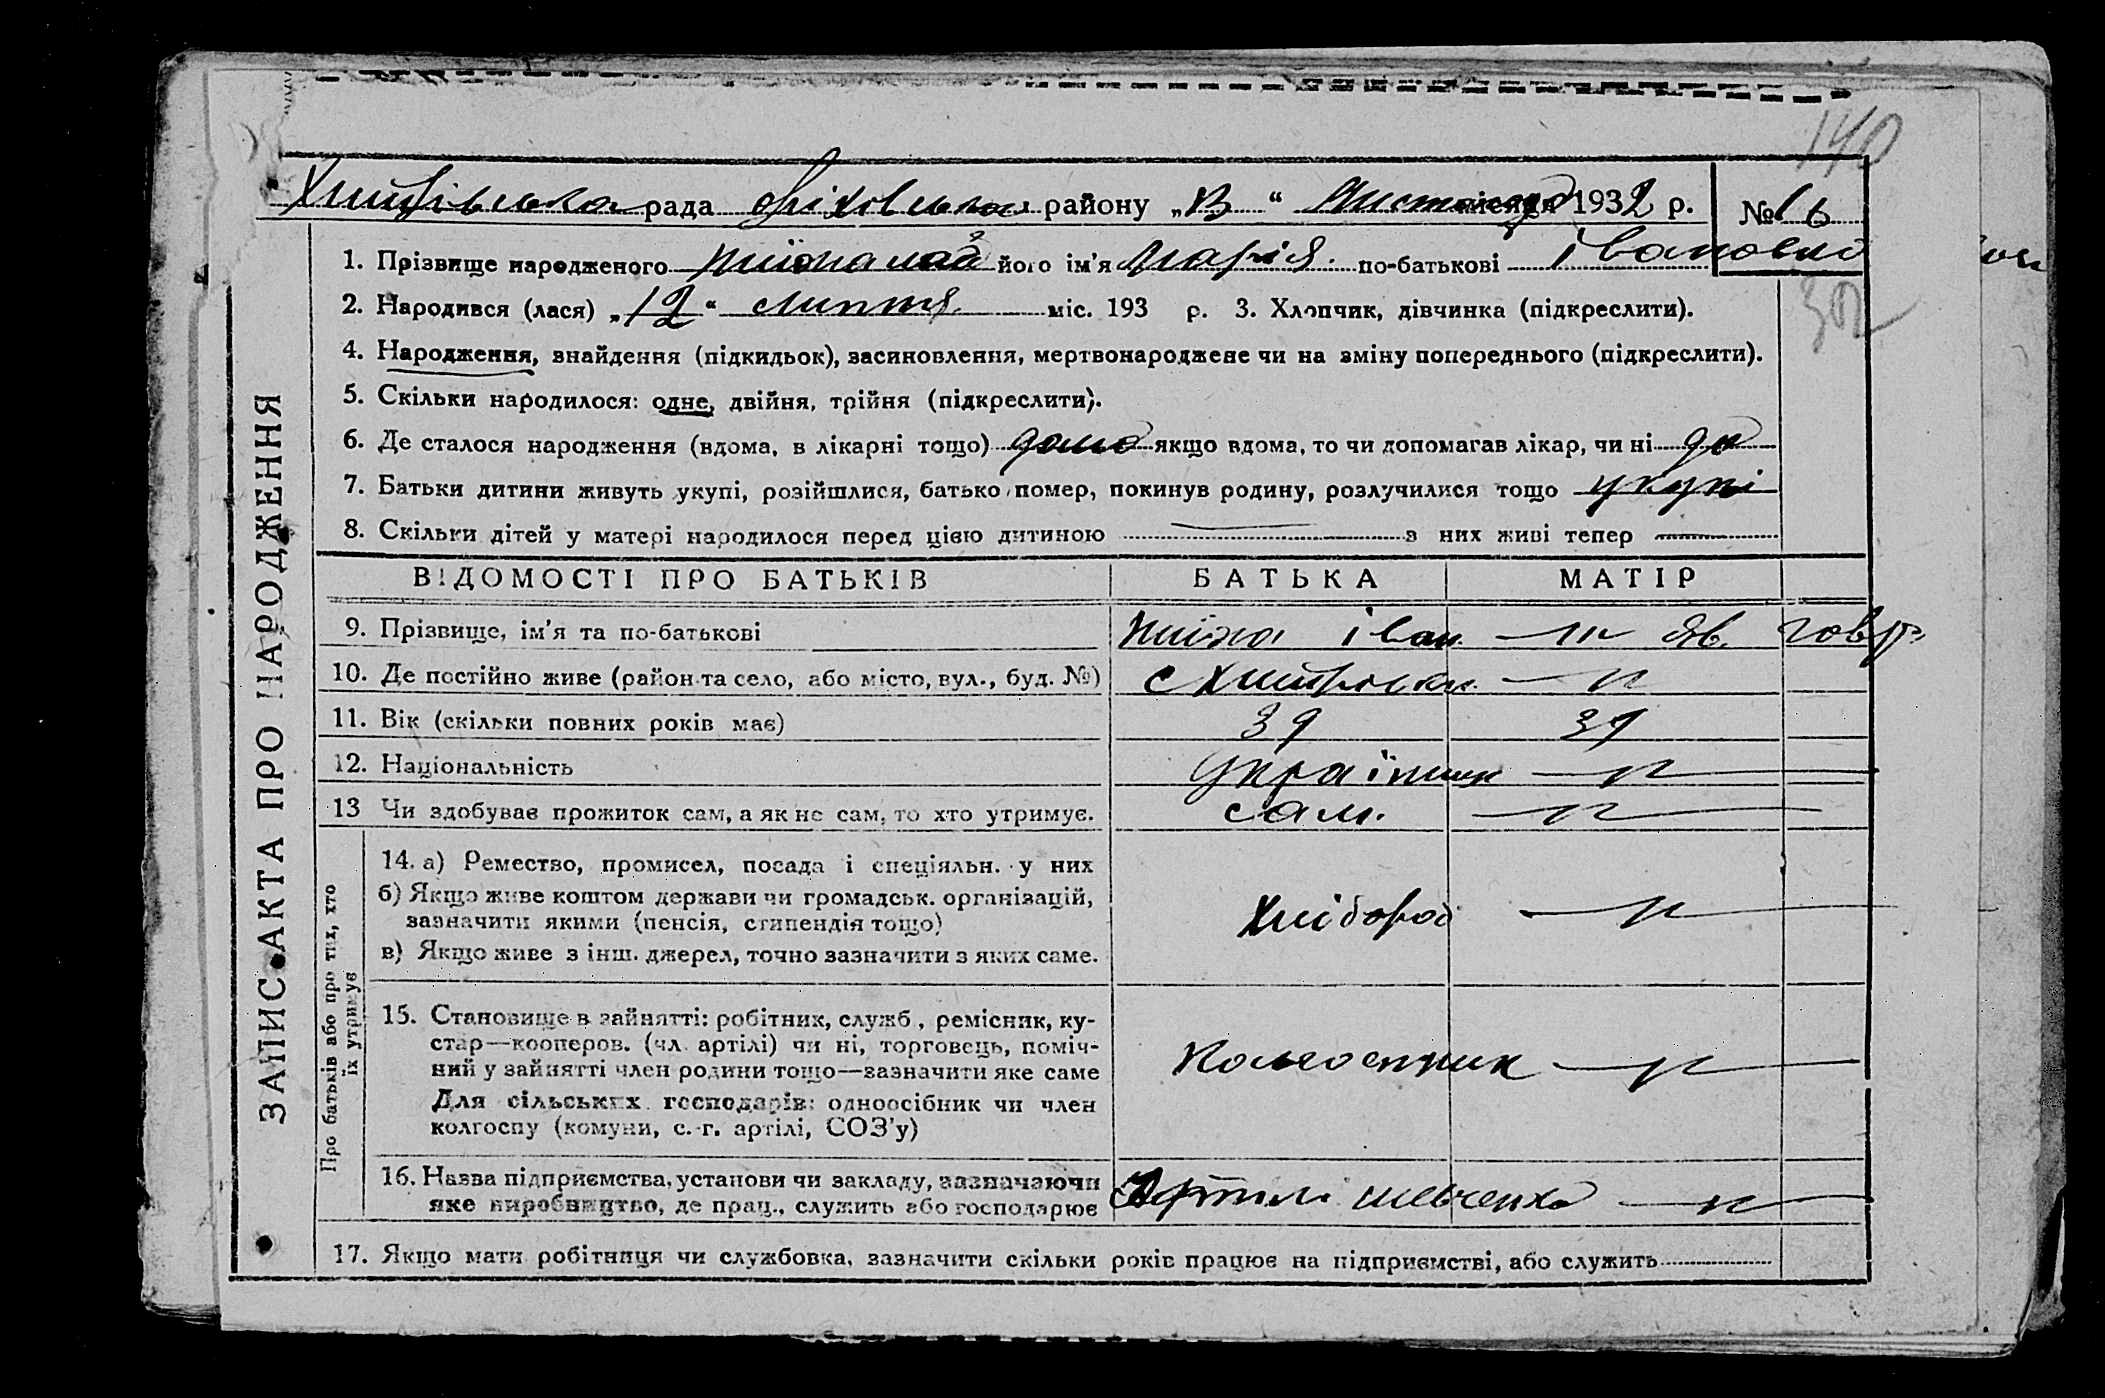 140
рада района району „13“ Листопад місяця 1932 р. № 16
1. Прізвище народженого його ім'я Марія. по-батькові Івановна
2. Народився (лася) „12“ Липня. міс. 193 р. 3. Хлопчик, дівчинка (підкреслити).
4. Народження, знайдення (підкидьок), засиновлення, мертвонароджене чи на зміну попереднього (підкреслити).
5. Скільки народилося: одне, двійня, трійня (підкреслити).
6. Де сталося народження (вдома, в лікарні тощо) дома якщо вдома, то чи допомагав лікар, чи ні
7. Батьки дитини живуть укупі, розійшлися, батько помер, покинув родину, розлучилися тощо укупі
8. Скільки дітей у матері народилося перед цією дитиною з них живі тепер
ЗАПИС АКТА ПРО НАРОДЖЕННЯ
ВІДОМОСТІ ПРО БАТЬКІВ БАТЬКА МАТІР
9. Прізвище, ім'я та по-батькові Іван.
10. Де постійно живе (район та село, або місто, вул., буд. №) с
11. Вік (скільки повних років має) 39 39
12. Національність Українець
13 Чи здобуває прожиток сам, а як не сам, то хто утримує. сам.
Про батьків або про тих, хто їх утримує
14. а) Ремество, промисел, посада і спеціяльн. у них
б) Якщо живе коштом держави чи громадськ. організацій,
зазначити якими (пенсія, стипендія тощо)
Хлібороб
в) Якщо живе з інш. джерел, точно зазначити з яких саме.
15. Становище в зайнятті: робітник, служб., ремісник, ку-
стар—кооперов. (чл. артілі) чи ні, торговець, поміч-
ний у зайнятті член родини тощо—зазначити яке саме
Колгоспник
Для сільських господарів: одноосібник чи член
колгоспу (комуни, с.-г. артілі, СОЗ'у)
16. Назва підприємства, установи чи закладу, зазначаючи
яке виробництво, де прац., служить або господарює
Артіли Шевченко
17. Якщо мати робітниця чи службовка, зазначити скільки років працює на підприємстві, або служить